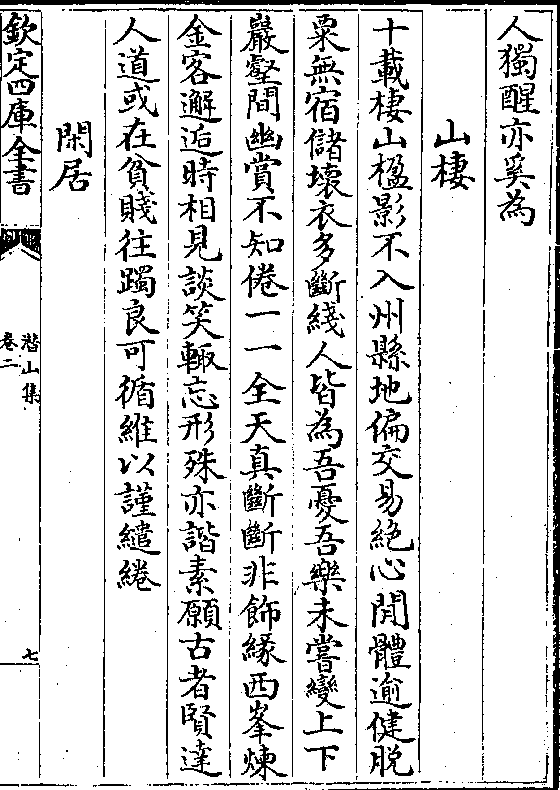 人獨醒亦奚為
山棲
十載棲山楹影不入州縣地偏交易絶心閒體逾健脱
粟無宿儲壊衣多斷綫人皆為吾憂吾樂未嘗變上下
巖壑間幽賞不知倦一一全天真斷斷非飾緣西峯煉
金客邂逅時相見談笑輙忘形殊亦諧素願古者賢達
人道或在貧賤往躅良可循維以謹繾綣
閑居
欽定四庫全書
潜山集
卷二
七